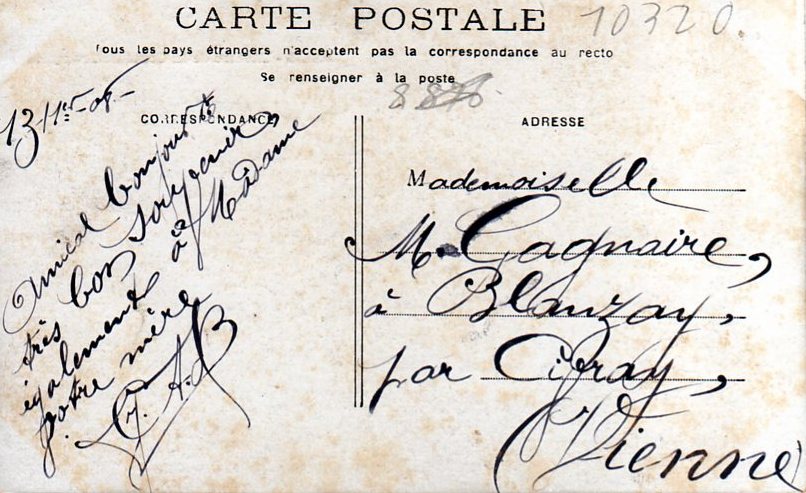 CARTE POSTALE
10320.
Tous les pays étrangers n'acceptent pas la correspondance au recto
Se renseigner à la poste
CORRESPONDANCE
13-11re-05-
Amical bonjour &
très bon souvenir,
également à Madame
votre mère
G. A. B
ADRESSE
Mademoiselle
M. Gagnaire,
à Blanzay,
par Civray,
Vienne